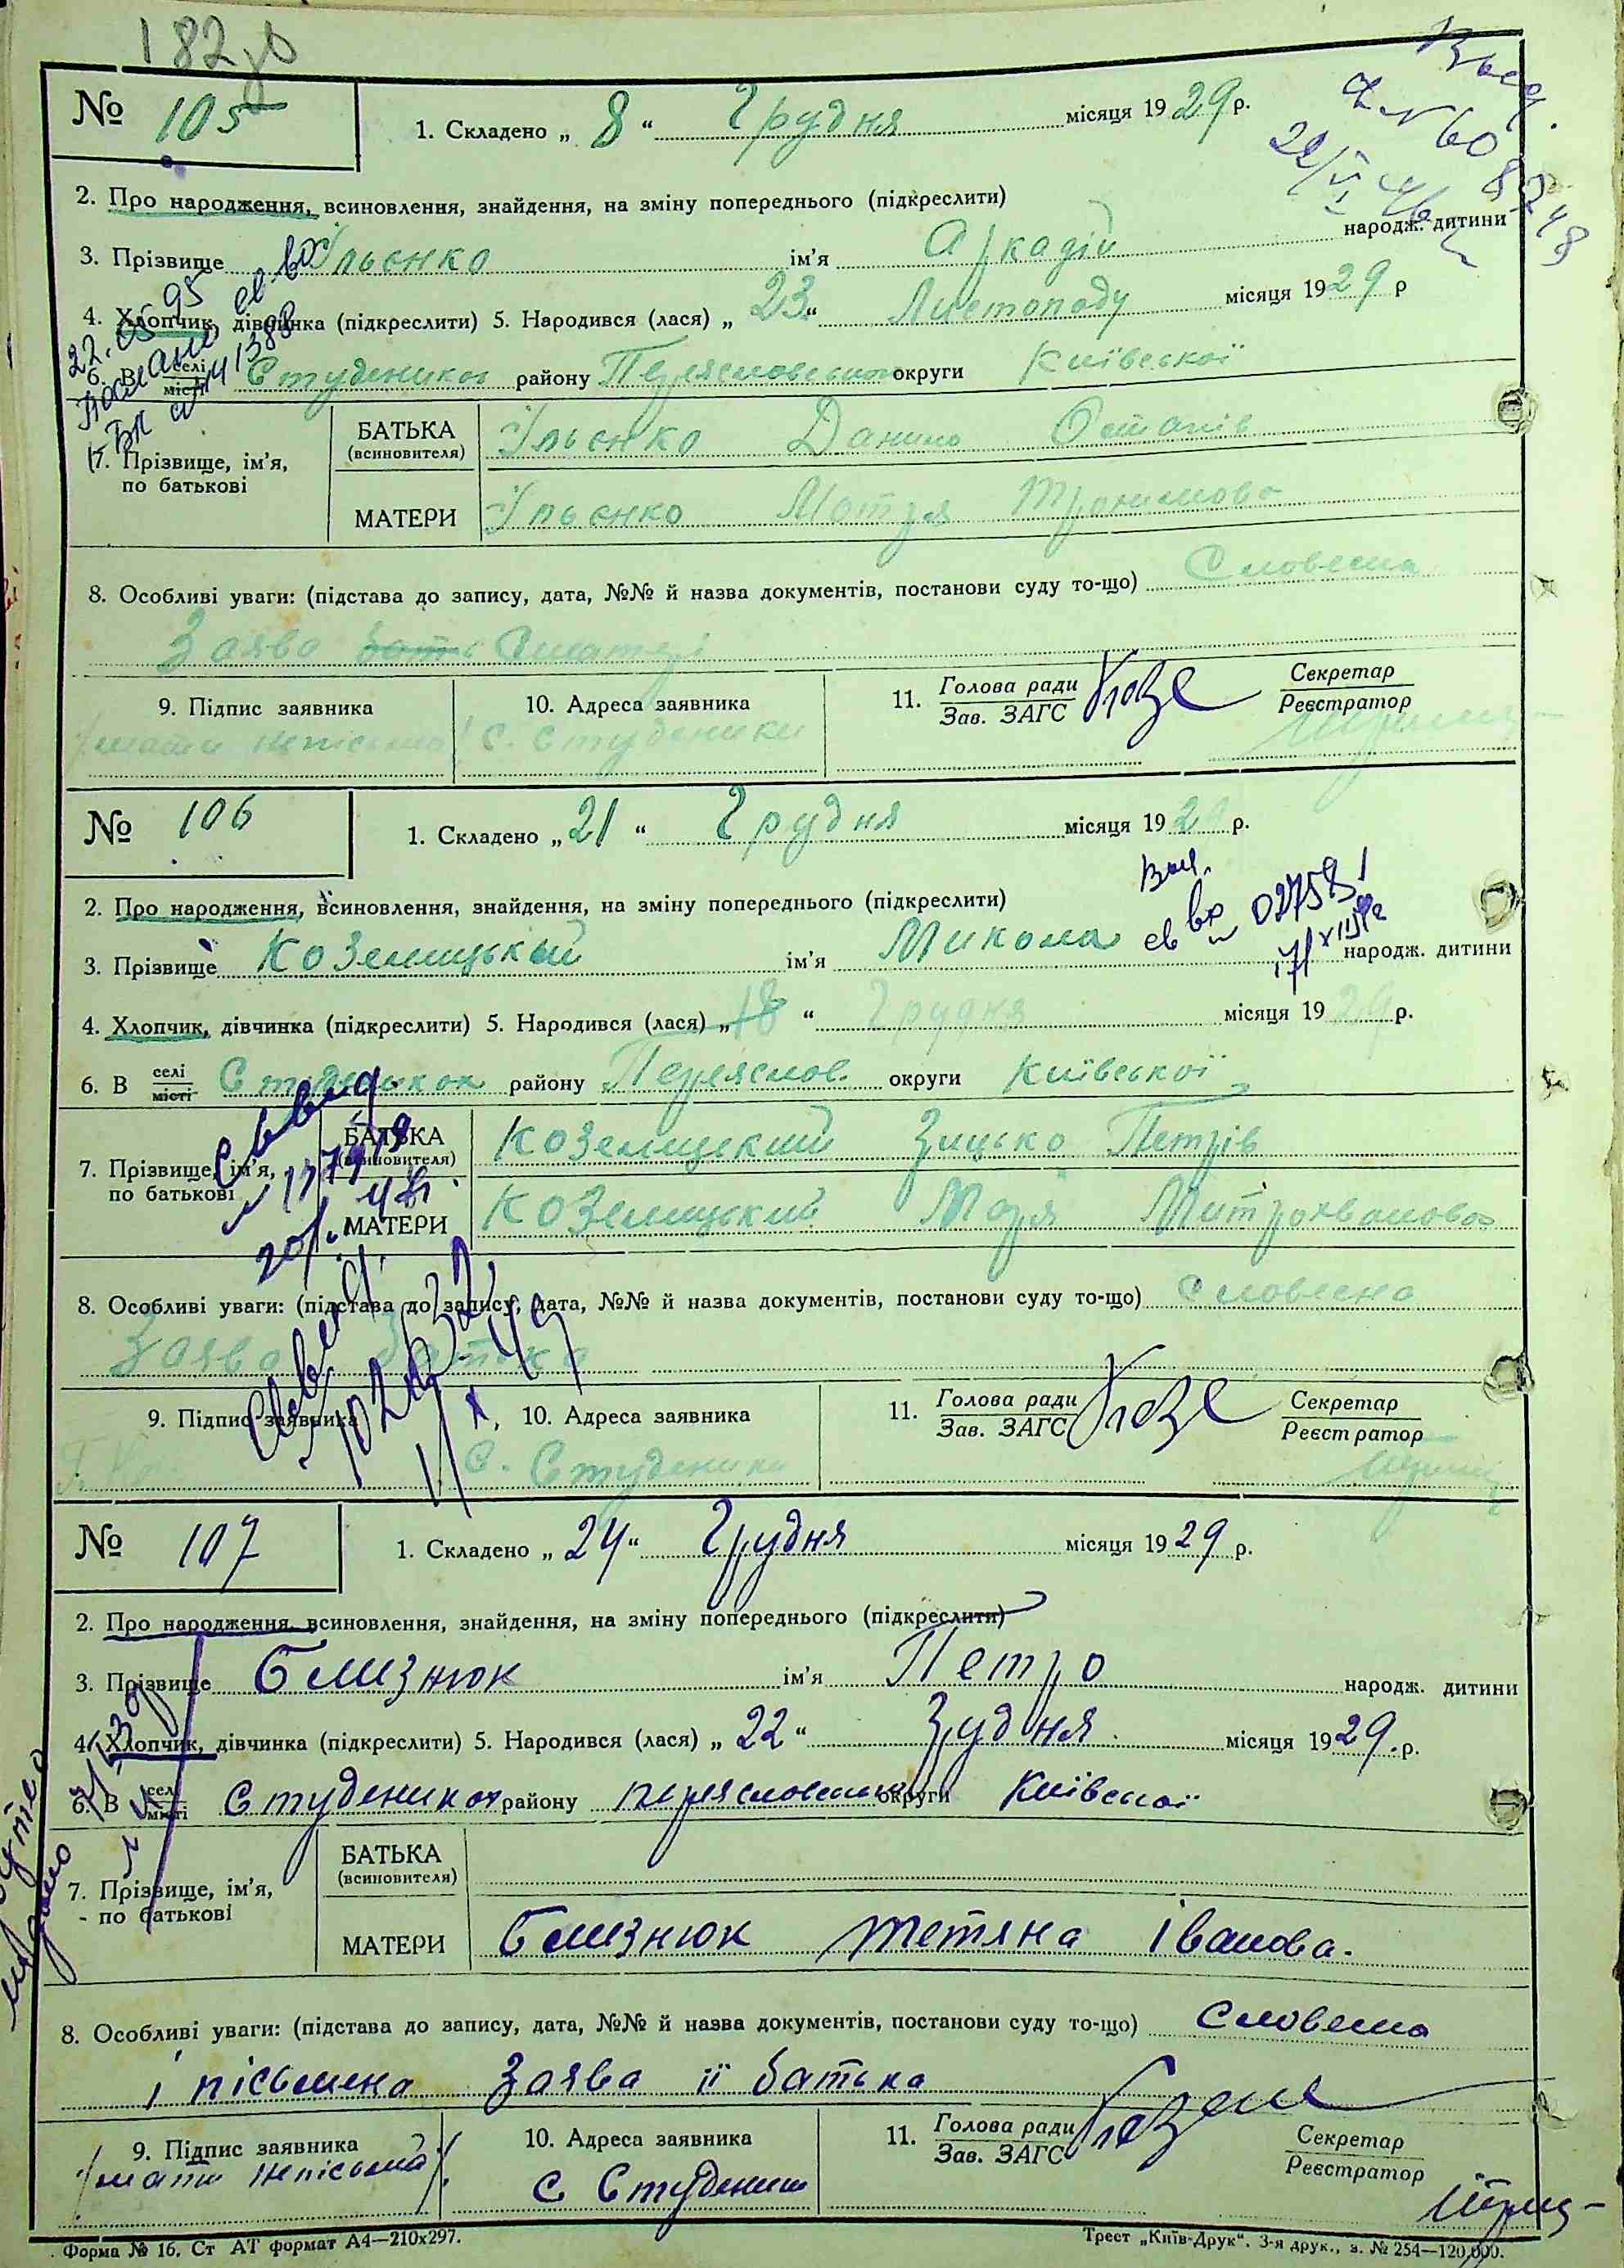 182 зв
№ 105
1. Складено „ 8 “ Грудня місяця 1929 р.
2. Про народження, всиновлення, знайдення, на зміну попереднього (підкреслити)
3. Прізвище Ільєнко ім'я Аркадій народж. дитини
4. Хлопчик, дівчинка (підкреслити) 5. Народився (лася) „ 23 “ Листопаду місяця 1929 р
6. В селі місті Студениках району Переяславського округи Київської
7. Прізвище, ім'я, по батькові
БАТЬКА (всиновителя) Ільєнко Данило Остапів
МАТЕРИ Ільєнко Мотря Трохимова
8. Особливі уваги: (підстава до запису, дата, №№ й назва документів, постанови суду то-що) Словесна
Заява матері
9. Підпис заявника
10. Адреса заявника
11. Голова ради Зав. ЗАГС
Секретар Реєстратор
/мати неписьмена/ с. Студеники
№ 106
1. Складено „ 21 “ Грудня місяця 1929 р.
2. Про народження, всиновлення, знайдення, на зміну попереднього (підкреслити)
3. Прізвище Коземицький ім'я Микола народж. дитини
4. Хлопчик, дівчинка (підкреслити) 5. Народився (лася) „ 18 “ Грудня місяця 1929 р.
6. В селі місті Студениках району Переяслов. округи Київської
7. Прізвище, ім'я, по батькові
БАТЬКА (всиновителя) Коземицкий Грицько Петрів
МАТЕРИ Коземицкий Марія Митрохванова
8. Особливі уваги: (підстава до запису, дата, №№ й назва документів, постанови суду то-що) Словесна
Заява батька
9. Підпис заявника
10. Адреса заявника
11. Голова ради Зав. ЗАГС
Секретар Реєстратор
с. Студеники
№ 107
1. Складено „ 24 “ Грудня місяця 1929 р.
2. Про народження, всиновлення, знайдення, на зміну попереднього (підкреслити)
3. Прізвище Близнюк ім'я Петро народж. дитини
4. Хлопчик, дівчинка (підкреслити) 5. Народився (лася) „ 22 “ Грудня місяця 1929. р.
6. В селі місті Студениках району переясловського округи Київської
7. Прізвище, ім'я, - по батькові
БАТЬКА (всиновителя)
МАТЕРИ Близнюк Тетяна Іванова.
8. Особливі уваги: (підстава до запису, дата, №№ й назва документів, постанови суду то-що) Словесна
і пісьмена заява її батька
9. Підпис заявника
10. Адреса заявника
11. Голова ради Зав. ЗАГС
Секретар Реєстратор
/мати непісьмна/ с Студеники
Форма № 16. Ст АТ формат А4—210х297.
Трест „Київ-Друк“. 3-я друк., з. № 254—120,000.